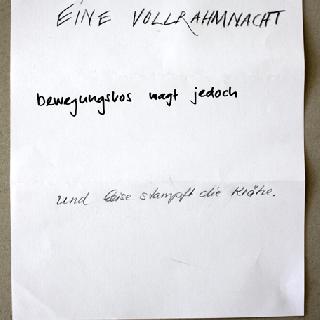 EINE VOLLRAHMNACHT
bewegungslos nagt jedoch
und leise stampft die Kröte.